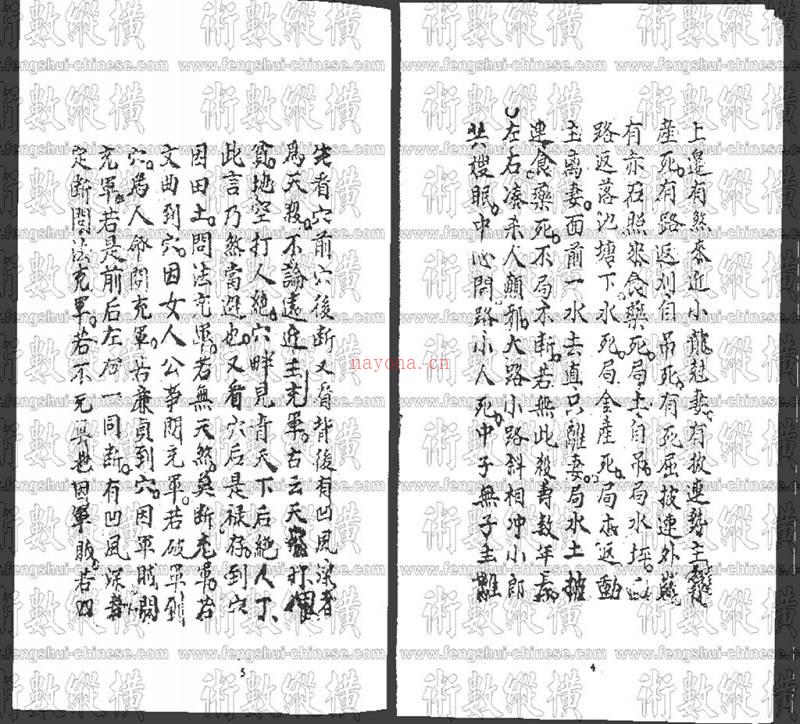 上邊有煞來近小龍尅妻有披連勢主
產死有路返刈自吊死有死屈披連外
有亦石照米食藥死局土自吊局水坪
路返落氹塘下水死局金產死局木返動
主离妻面前一水去直只離妻局水土披
連食藥死不局不断若無此殺壽数年
左右凑杀人顛邪大路小路斜相冲小郎
共嫂眠中心門路小人死中子無子主離
4
先看穴前穴後断又看背後有凹風深者
為天殺不論遠近主充軍古云天打
貧地空打人絶穴畔見青天下后絶人丁
此言乃煞當避也又看穴后是禄存到穴
因田土問法充軍若無天煞莫断充軍若
文曲到穴因女人公事問充軍若破軍到
穴為人命問充軍若廉貞到穴因軍賊問
充軍若是前后左右一同断有凹風深者
定断問法充軍若不充異也因軍賊若四
5
術數縱橫
www.fengshui-chinese.com
nayona.cn